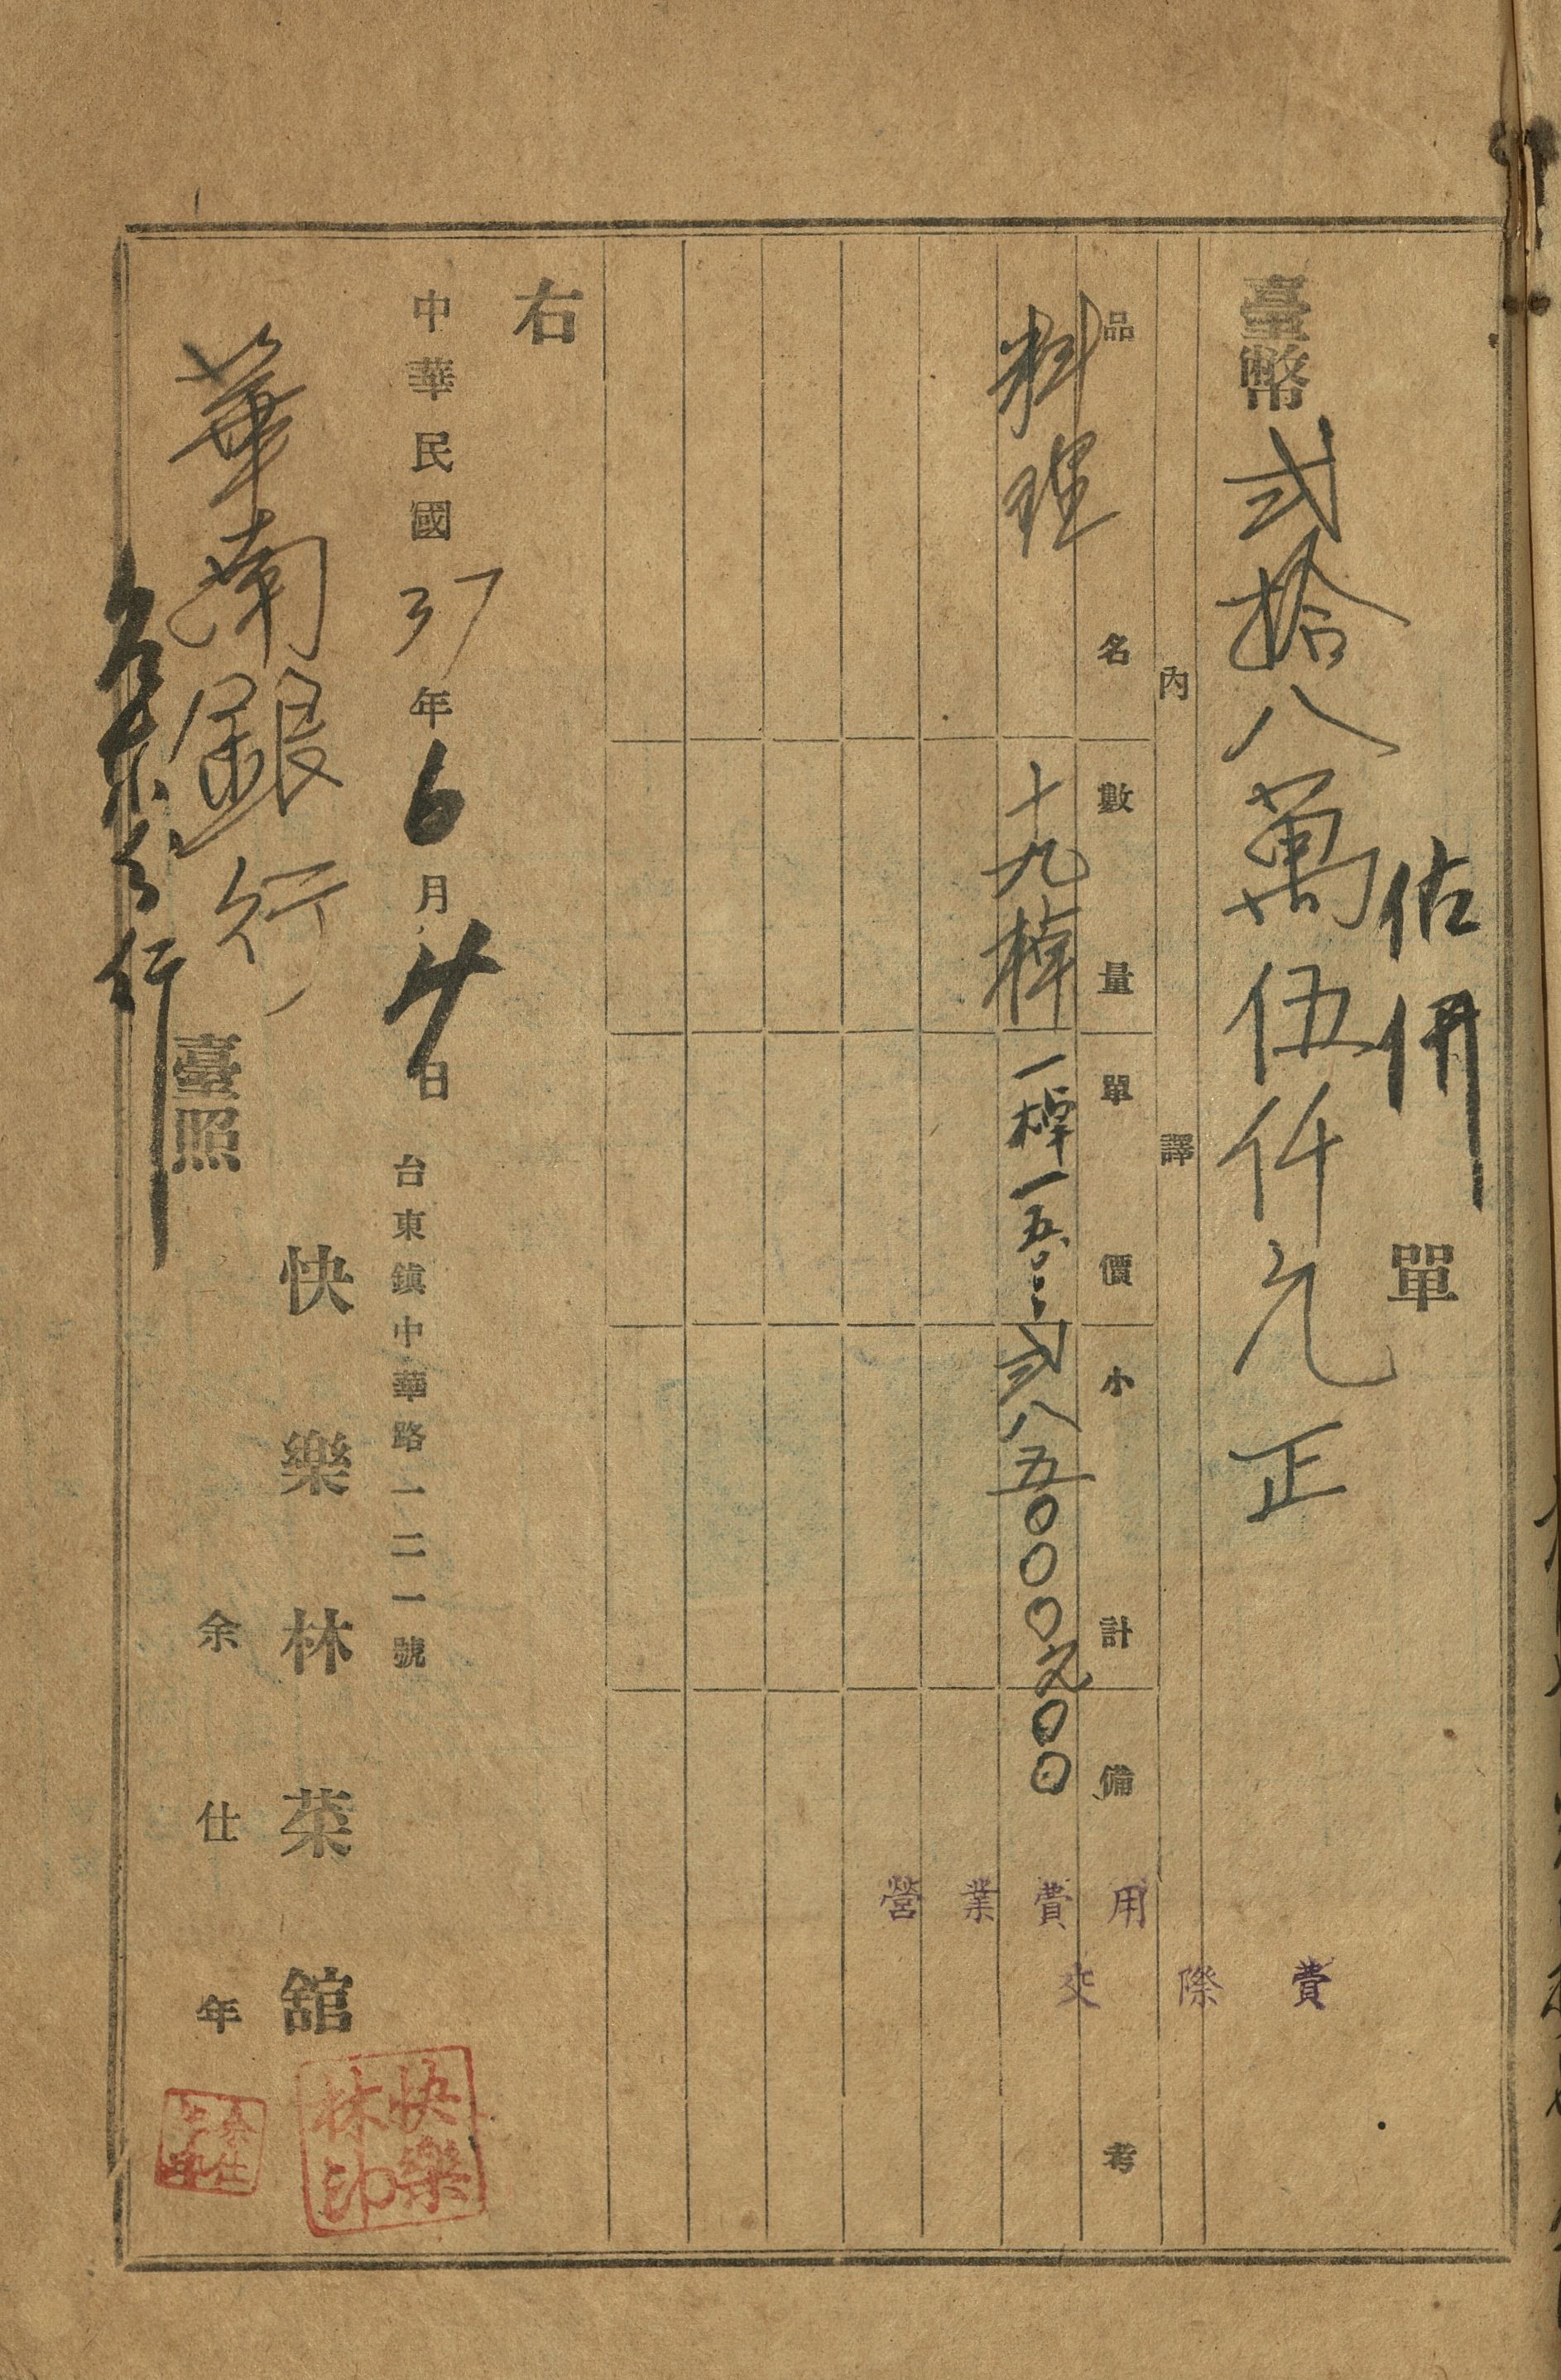 估併單
臺幣弍拾八萬伍仟元正
內譯
品名 數量 單價 小計 備考
料理 十九棹 一棹一五、〇〇〇 弍八五〇〇〇元〇〇
營業費用
交際費
右
中華民國37年6月4日
台東鎮中華路一二一號
快樂林菜舘
余仕年
華南銀行臺照
台東分行
快樂林印